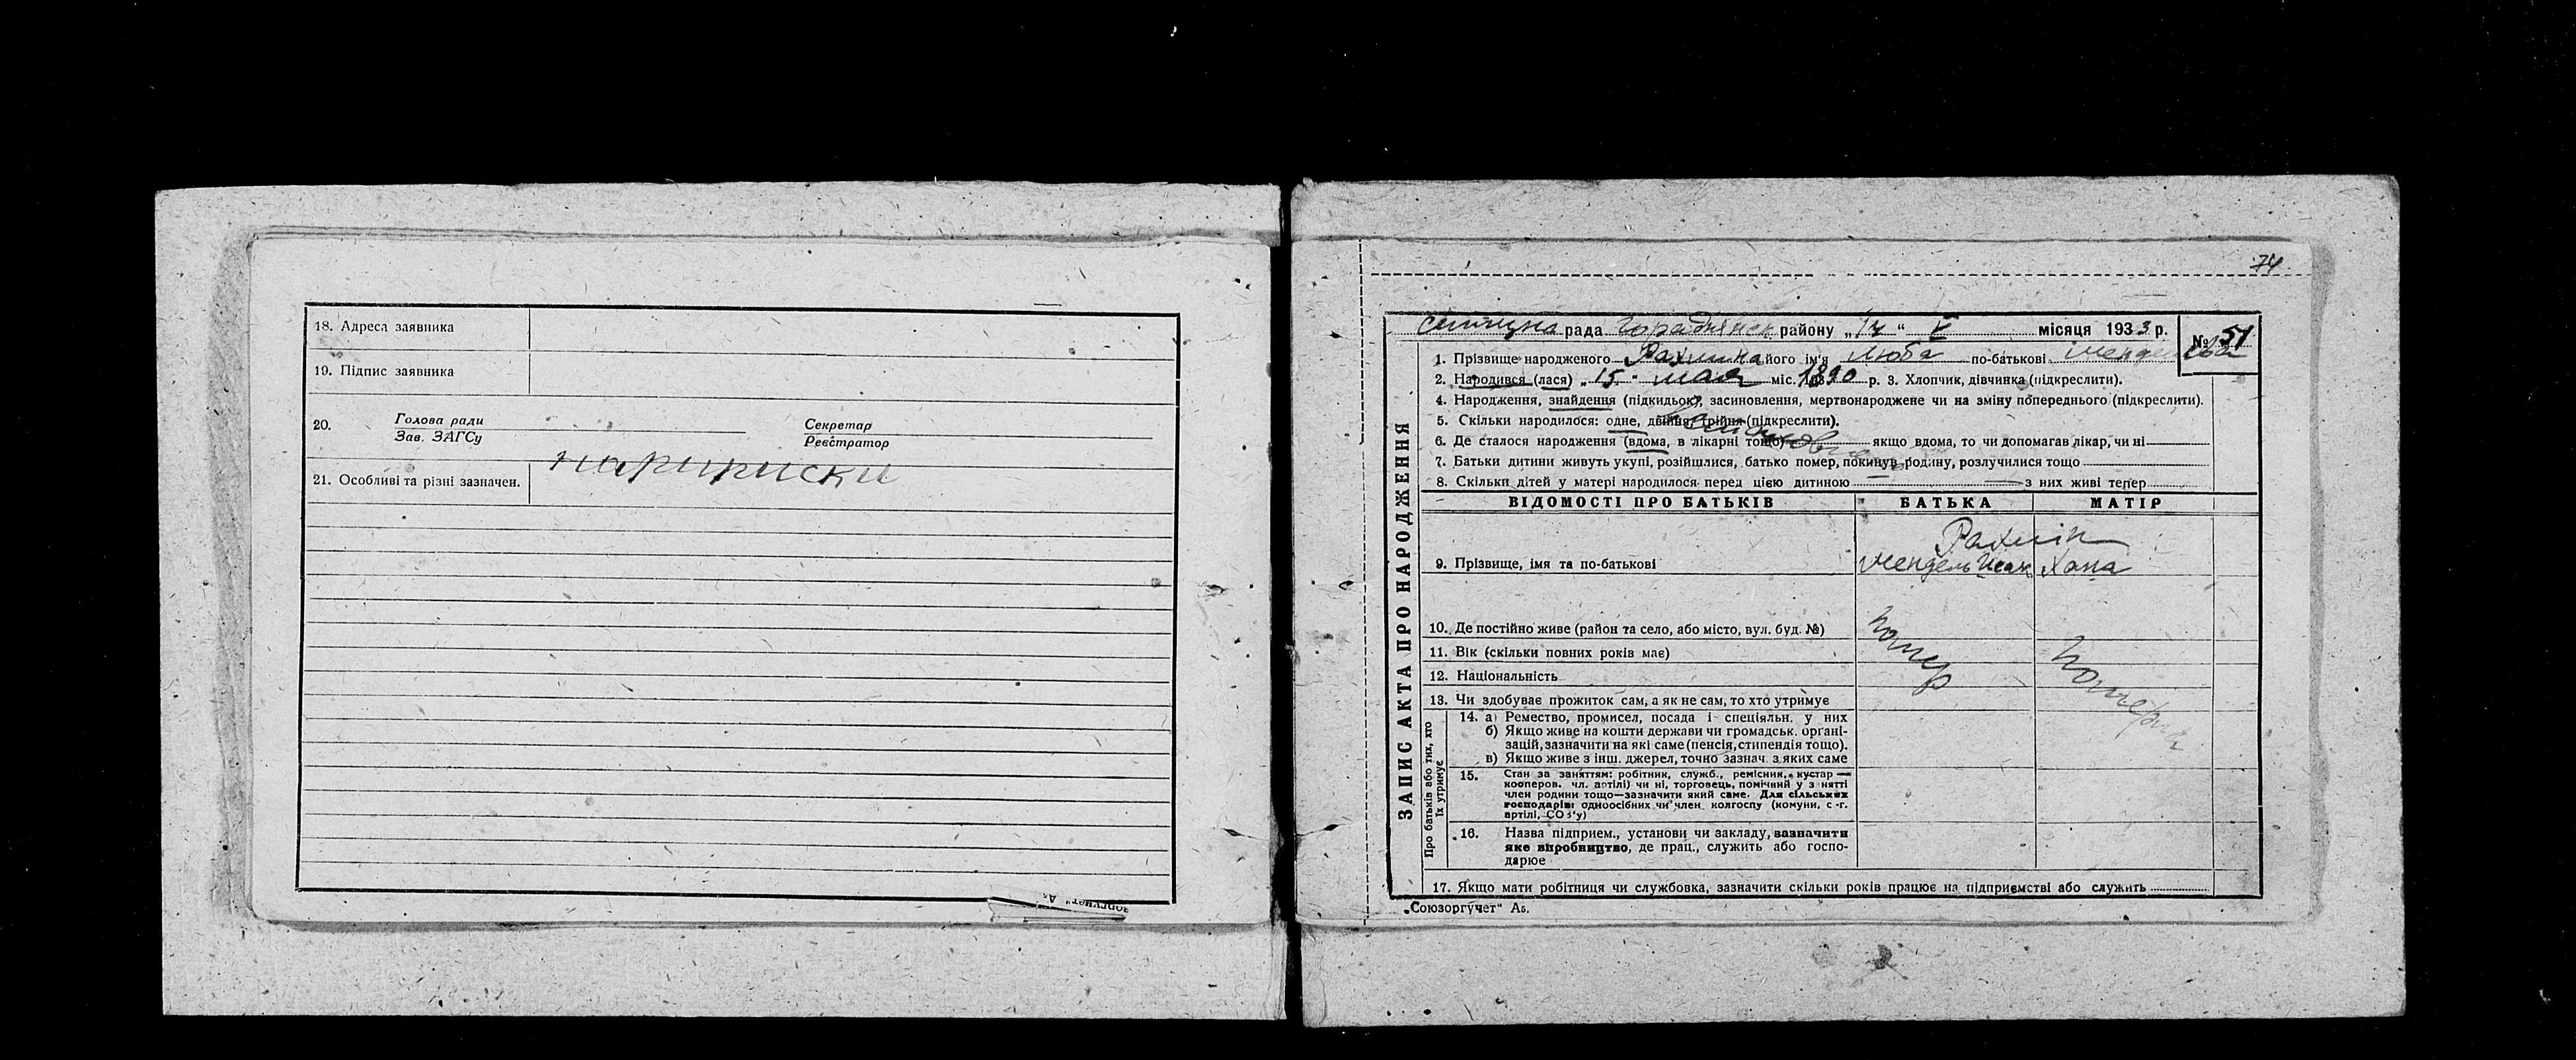 18. Адреса заявника
19. Підпис заявника
20. Голова ради
Зав. ЗАГСу
Секретар
Реєстратор
21. Особливі та різні зазначен.
74
рада района району „ “ V місяця 1933 р.
№ 51
1. Прізвище народженого Рахлина його ім'я Люба по-батькові
2. Народився (лася) „15“ мая міс. 1890 р. 3. Хлопчик, дівчинка (підкреслити).
4. Народження, знайдення (підкидьок), засиновлення, мертвонароджене чи на зміну попереднього (підкреслити).
5. Скільки народилося: одне, двійня, трійня (підкреслити).
6. Де сталося народження (вдома, в лікарні тощо) якщо вдома, то чи допомагав лікар, чи ні
7. Батьки дитини живуть укупі, розійшлися, батько помер, покинув родину, розлучилися тощо
8. Скільки дітей у матері народилося перед цією дитиною з них живі тепер
ЗАПИС АКТА ПРО НАРОДЖЕННЯ
ВІДОМОСТІ ПРО БАТЬКІВ БАТЬКА МАТІР
Рахлін
9. Прізвище, імя та по-батькові Мендель Исак Хана
10. Де постійно живе (район та село, або місто, вул. буд. №)
11. Вік (скільки повних років має)
помер
померла
12. Національність
13. Чи здобуває прожиток сам, а як не сам, то хто утримує
Про батьків або тих, хто
їх утримує
14. а) Ремество, промисел, посада і спеціяльн. у них
б) Якщо живе на кошти держави чи громадськ. орґані-
зацій, зазначити на які саме (пенсія, стипендія тощо).
в) Якщо живе з інш. джерел, точно зазнач. з яких саме
15. Стан за заняттям: робітник, служб., ремісник, кустар —
кооперов. чл. артілі) чи ні, торговець, помічний у занятті
член родини тощо—зазначити який саме. Для сільських
господарів: одноосібних чи член колгоспу (комуни, с.-г.
артілі, СОЗ'у)
16. Назва підприєм., установи чи закладу, зазначити
яке виробництво, де прац., служить або госпо-
дарює
17. Якщо мати робітниця чи службовка, зазначити скільки років працює на підприємстві або служить
„Союзоргучет“ Аб.